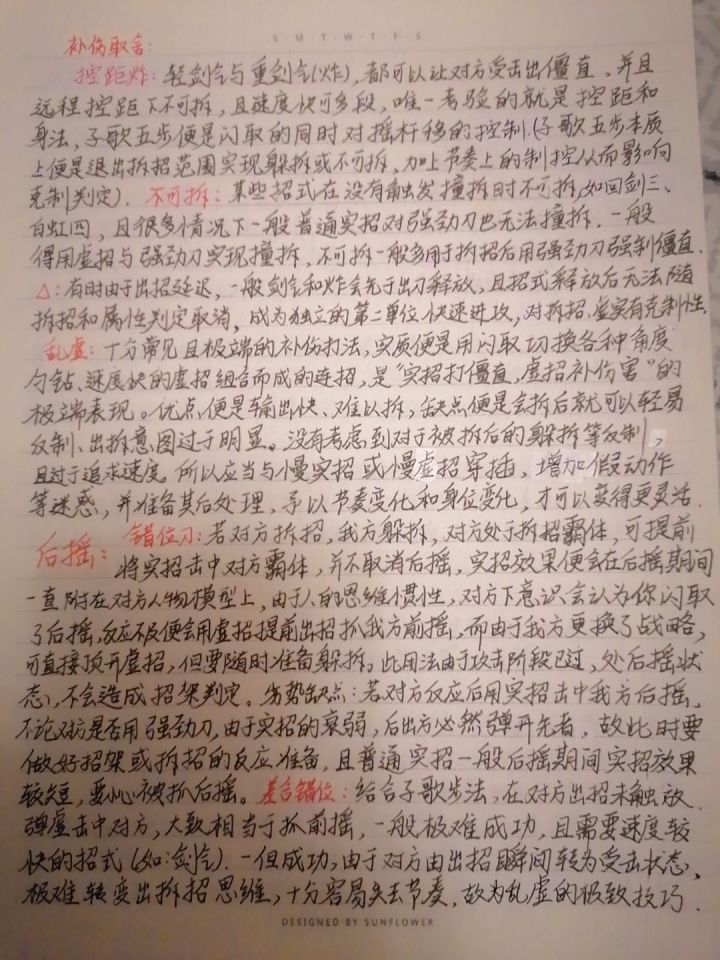 S·M·T·W·T·F·S
补伤取舍:
控距炸: 轻剑气与重剑气(炸), 都可以让对方受击出僵直、并且
远程控距下不可拆, 且速度快可多段, 唯一考验的就是控距和
身法, 子歌五步便是闪取的同时对摇杆移的控制.(子歌五步本质
上便是退出拆招范围实现躲拆或不可拆、加上节奏上的制控从而影响
克制判定). 不可拆: 某些招式在没有触发撞拆时不可拆,如回剑三、
白虹四, 且很多情况下一般普通实招对强劲刀也无法撞拆. 一般
得用虚招与强劲刀实现撞拆, 不可拆一般多用于拆招后用强劲刀强制僵直.
△: 有时由于出招延迟, 一般剑气和炸会先于出刀释放, 且招式释放后无法随
拆招和属性判定取消, 成为独立的第二单位快速进攻, 对拆招.虚实有克制性.
乱虚: 十分常见且极端的补伤打法, 实质便是用闪取切换各种角度
勺钻、速度快的虚招组合而成的连招, 是“实招打僵直,虚招补伤害”的
极端表现。优点便是输出快、难以拆, 缺点便是会拆后就可以轻易
反制、出拆意图过于明显。没有考虑到对于被拆后的躲拆等反制,
且过于追求速度。所以应当与慢实招或慢虚招穿插, 增加假动作
等迷惑, 并准备其后处理, 予以节奏变化和身位变化, 才可以变得更灵活.
错位刀: 若对方拆招, 我方躲拆, 对方处于拆招霸体, 可提前
后摇: 将实招击中对方霸体, 并不取消后摇, 实招效果便会在后摇期间
一直附在对方人物模型上, 由于人的思维惯性, 对方下意识会认为你闪取
了后摇,反应不及便会用虚招提前出招抓我方前摇, 而由于我方更换了战略,
可直接顶开虚招, 但要随时准备躲拆。此用法由于攻击阶段已过, 处后摇状
态, 不会造成招架判定。劣势缺点: 若对方反应后用实招击中我方后摇,
不论对方是否用强劲刀, 由于实招的衰弱, 后出方必然弹开先者, 故此时要
做好招架或拆招的反应准备, 且普通实招一般后摇期间实招效果
较短, 要小心被抓后摇。差合错位: 结合子歌步法, 在对方出招未触放.
弹虚击中对方, 大致相当于抓前摇, 一般极难成功, 且需要速度较
快的招式(如:剑气). 一但成功, 由于对方由出招瞬间转为受击状态,
极难转变出拆招思维, 十分容易失去节奏, 故为乱虚的极致技巧.
DESIGNED BY SUNFLOWER